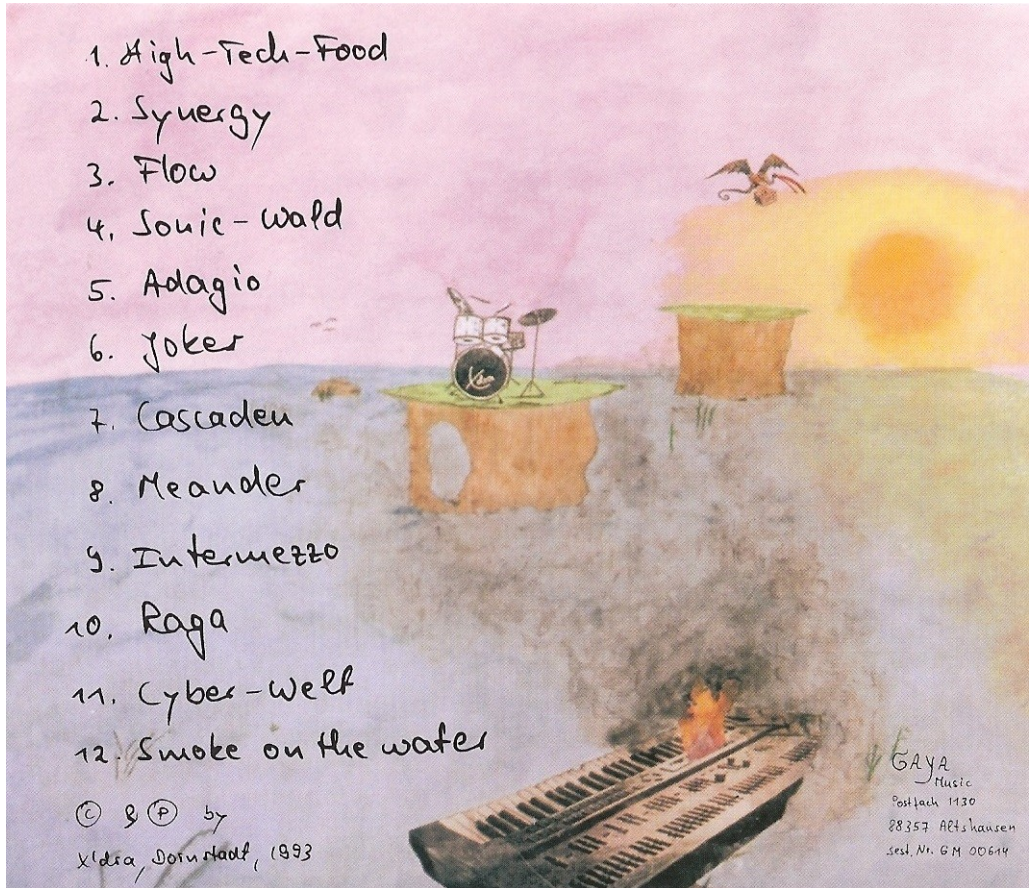 1. High-Tech-Food
2. Synergy
3. Flow
4. Sonic-Wald
5. Adagio
6. Joker
7. Cascaden
8. Meander
9. Intermezzo
10. Raga
11. Cyber-Welt
12. Smoke on the water
© & ℗ by
X'dra, Dornstadt, 1993
GAYA
Music
Postfach 1130
88357 Altshausen
Best. Nr. GM 00614